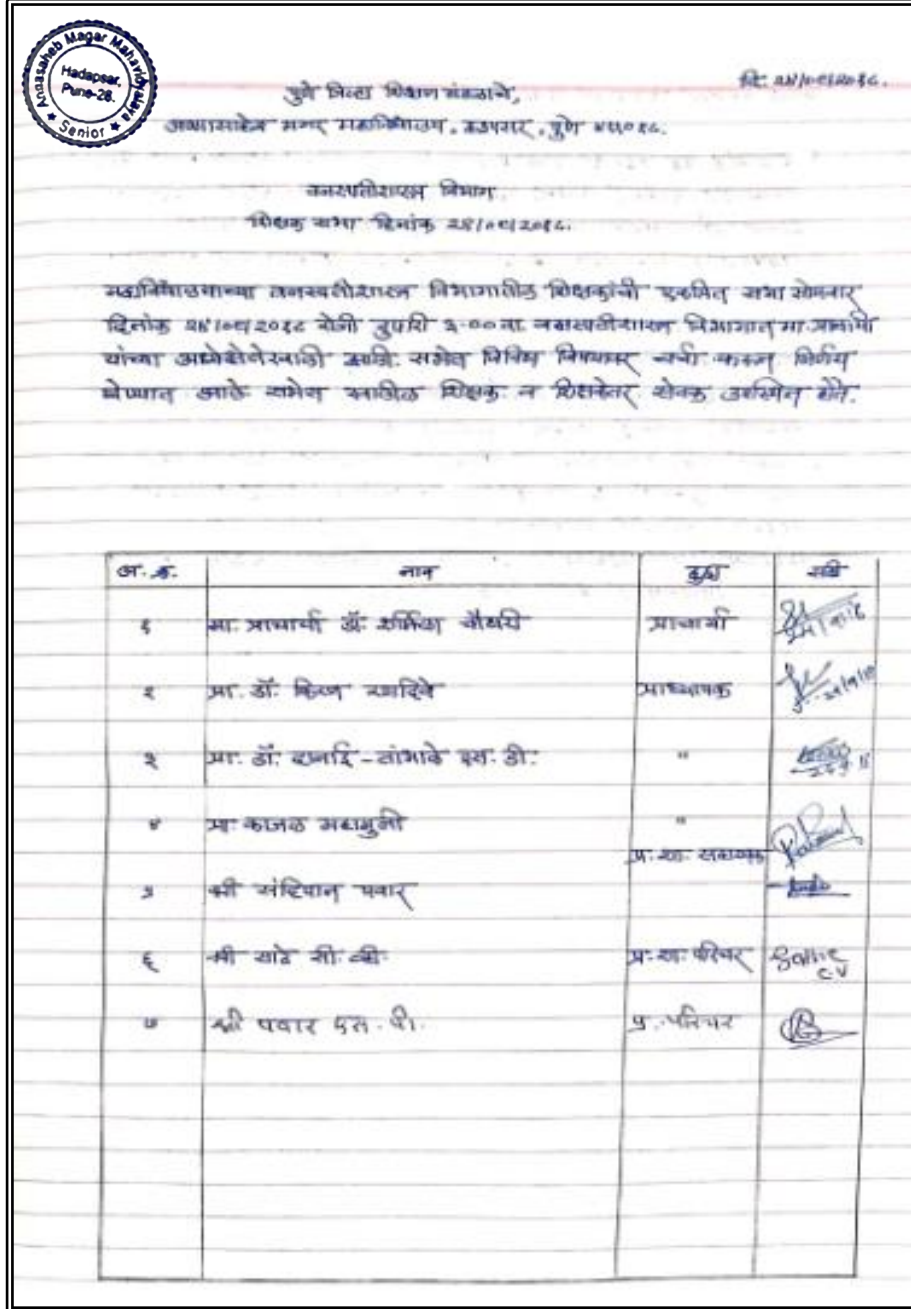 Annasaheb Magar Mahavidyalaya
Hadapsar,
Pune-28.
Senior
दि. २४/०९/२०१८.
पुणे जिल्हा शिक्षण मंडळाचे,
अण्णासाहेब मगर महाविद्यालय, हडपसर, पुणे ४११०२८.
वनस्पतीशास्त्र विभाग
शिक्षक सभा दिनांक २४/०९/२०१८.
महाविद्यालयाच्या वनस्पतीशास्त्र विभागातील शिक्षकांची एकत्रित सभा सोमवार
दिनांक २४/०९/२०१८ रोजी दुपारी ३.०० वा. वनस्पतीशास्त्र विभागात मा. प्राचार्या
यांच्या झाली. सभेत विविध विषयावर चर्चा करून निर्णय
घेण्यात आले सभेस खालील शिक्षक व शिक्षकेतर सेवक उपस्थित होते.
अ. क्र. नाव हुद्दा सही
१ मा. प्राचार्या डॉ. चौधरी प्राचार्या
२ प्रा. डॉ. किरण रणदिवे प्राध्यापक
३ प्रा. डॉ. एस. डी. "
४ प्रा. काजळ महामुनी "
प्र. शा. सहाय्यक
५ श्री संदिपान पवार
६ श्री साठे सी. व्ही. प्र. शा. परिचर
७ श्री पवार एस. पी. प्र. परिचर